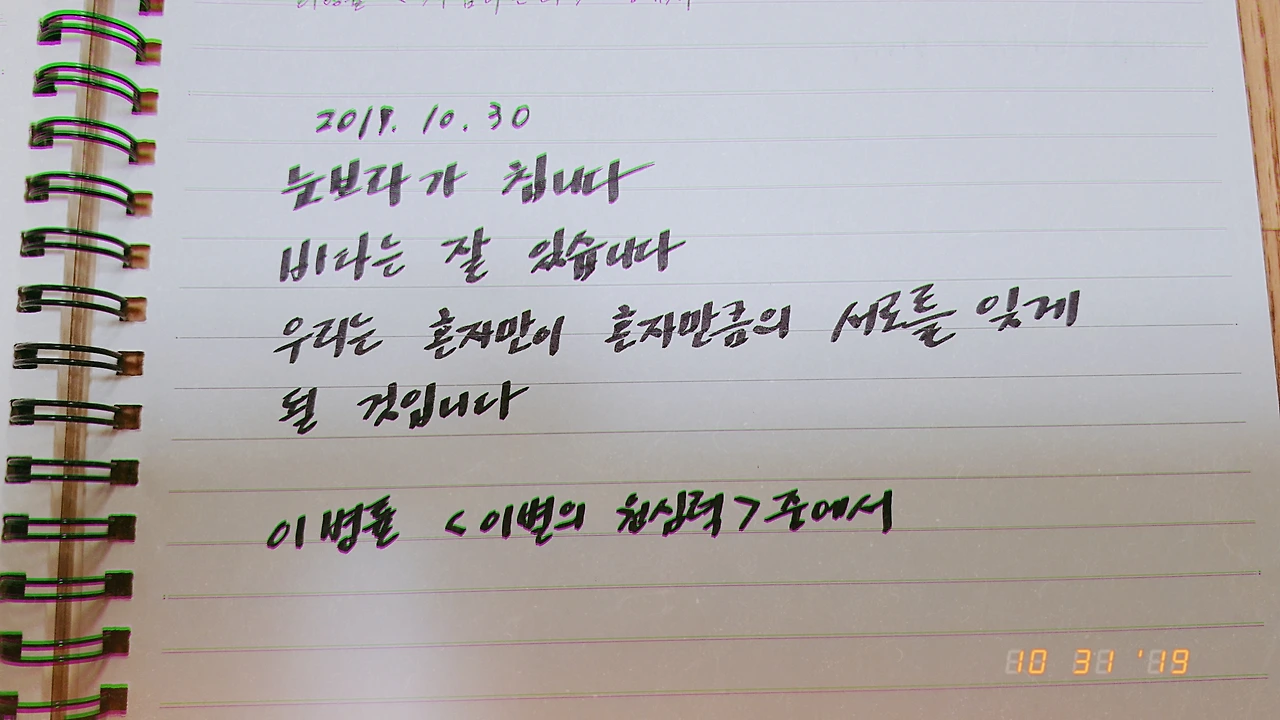 2019. 10. 30
눈보라가 칩니다
바다는 잘 있습니다
우리는 혼자만이 혼자만큼의 서로를 잊게
될 것입니다
이병률 <이별의 원심력> 중에서
10 31 '19